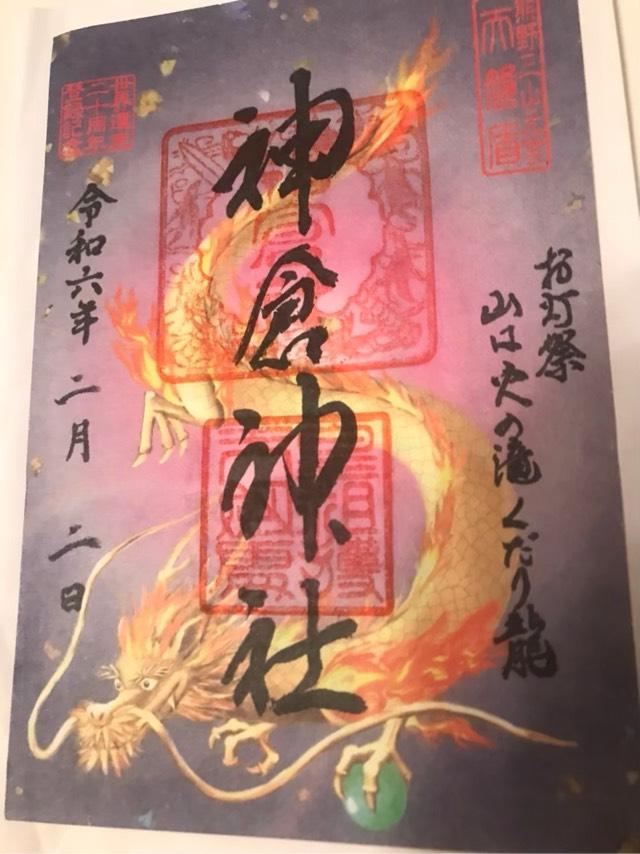 熊野三山
お灯祭
山は火の滝くだり龍
神倉神社
世界遺産
二十周年
登録記念
令和六年 二月 二日